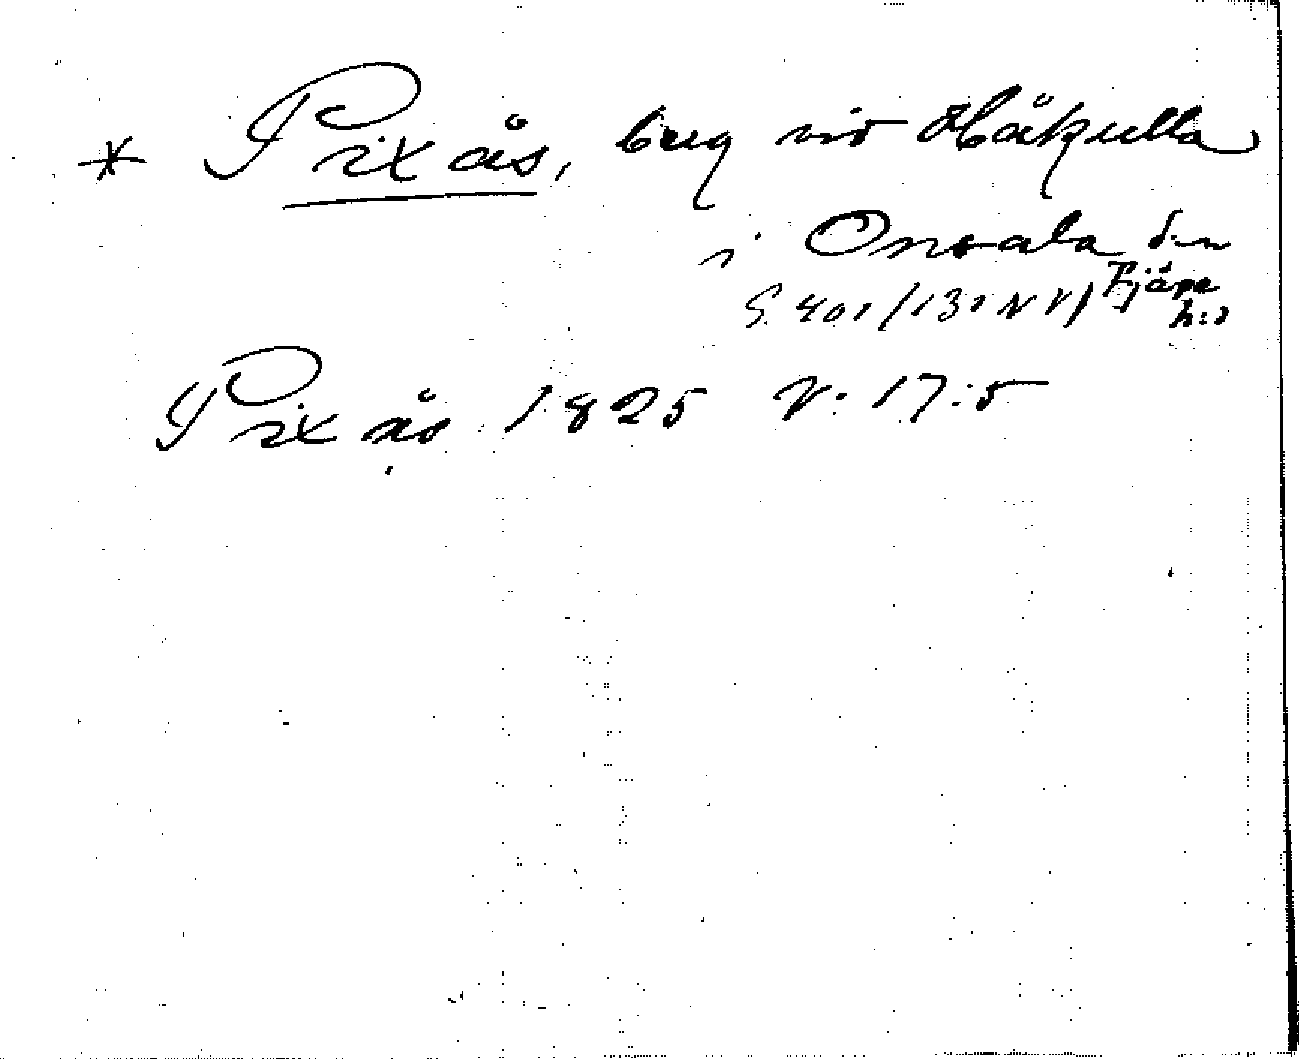 * Pixås, berg vid Håkulla
i Onsala s:n
S. 401/131 NV) Fjäre
h:d
Pixås 1825 V: 17:5